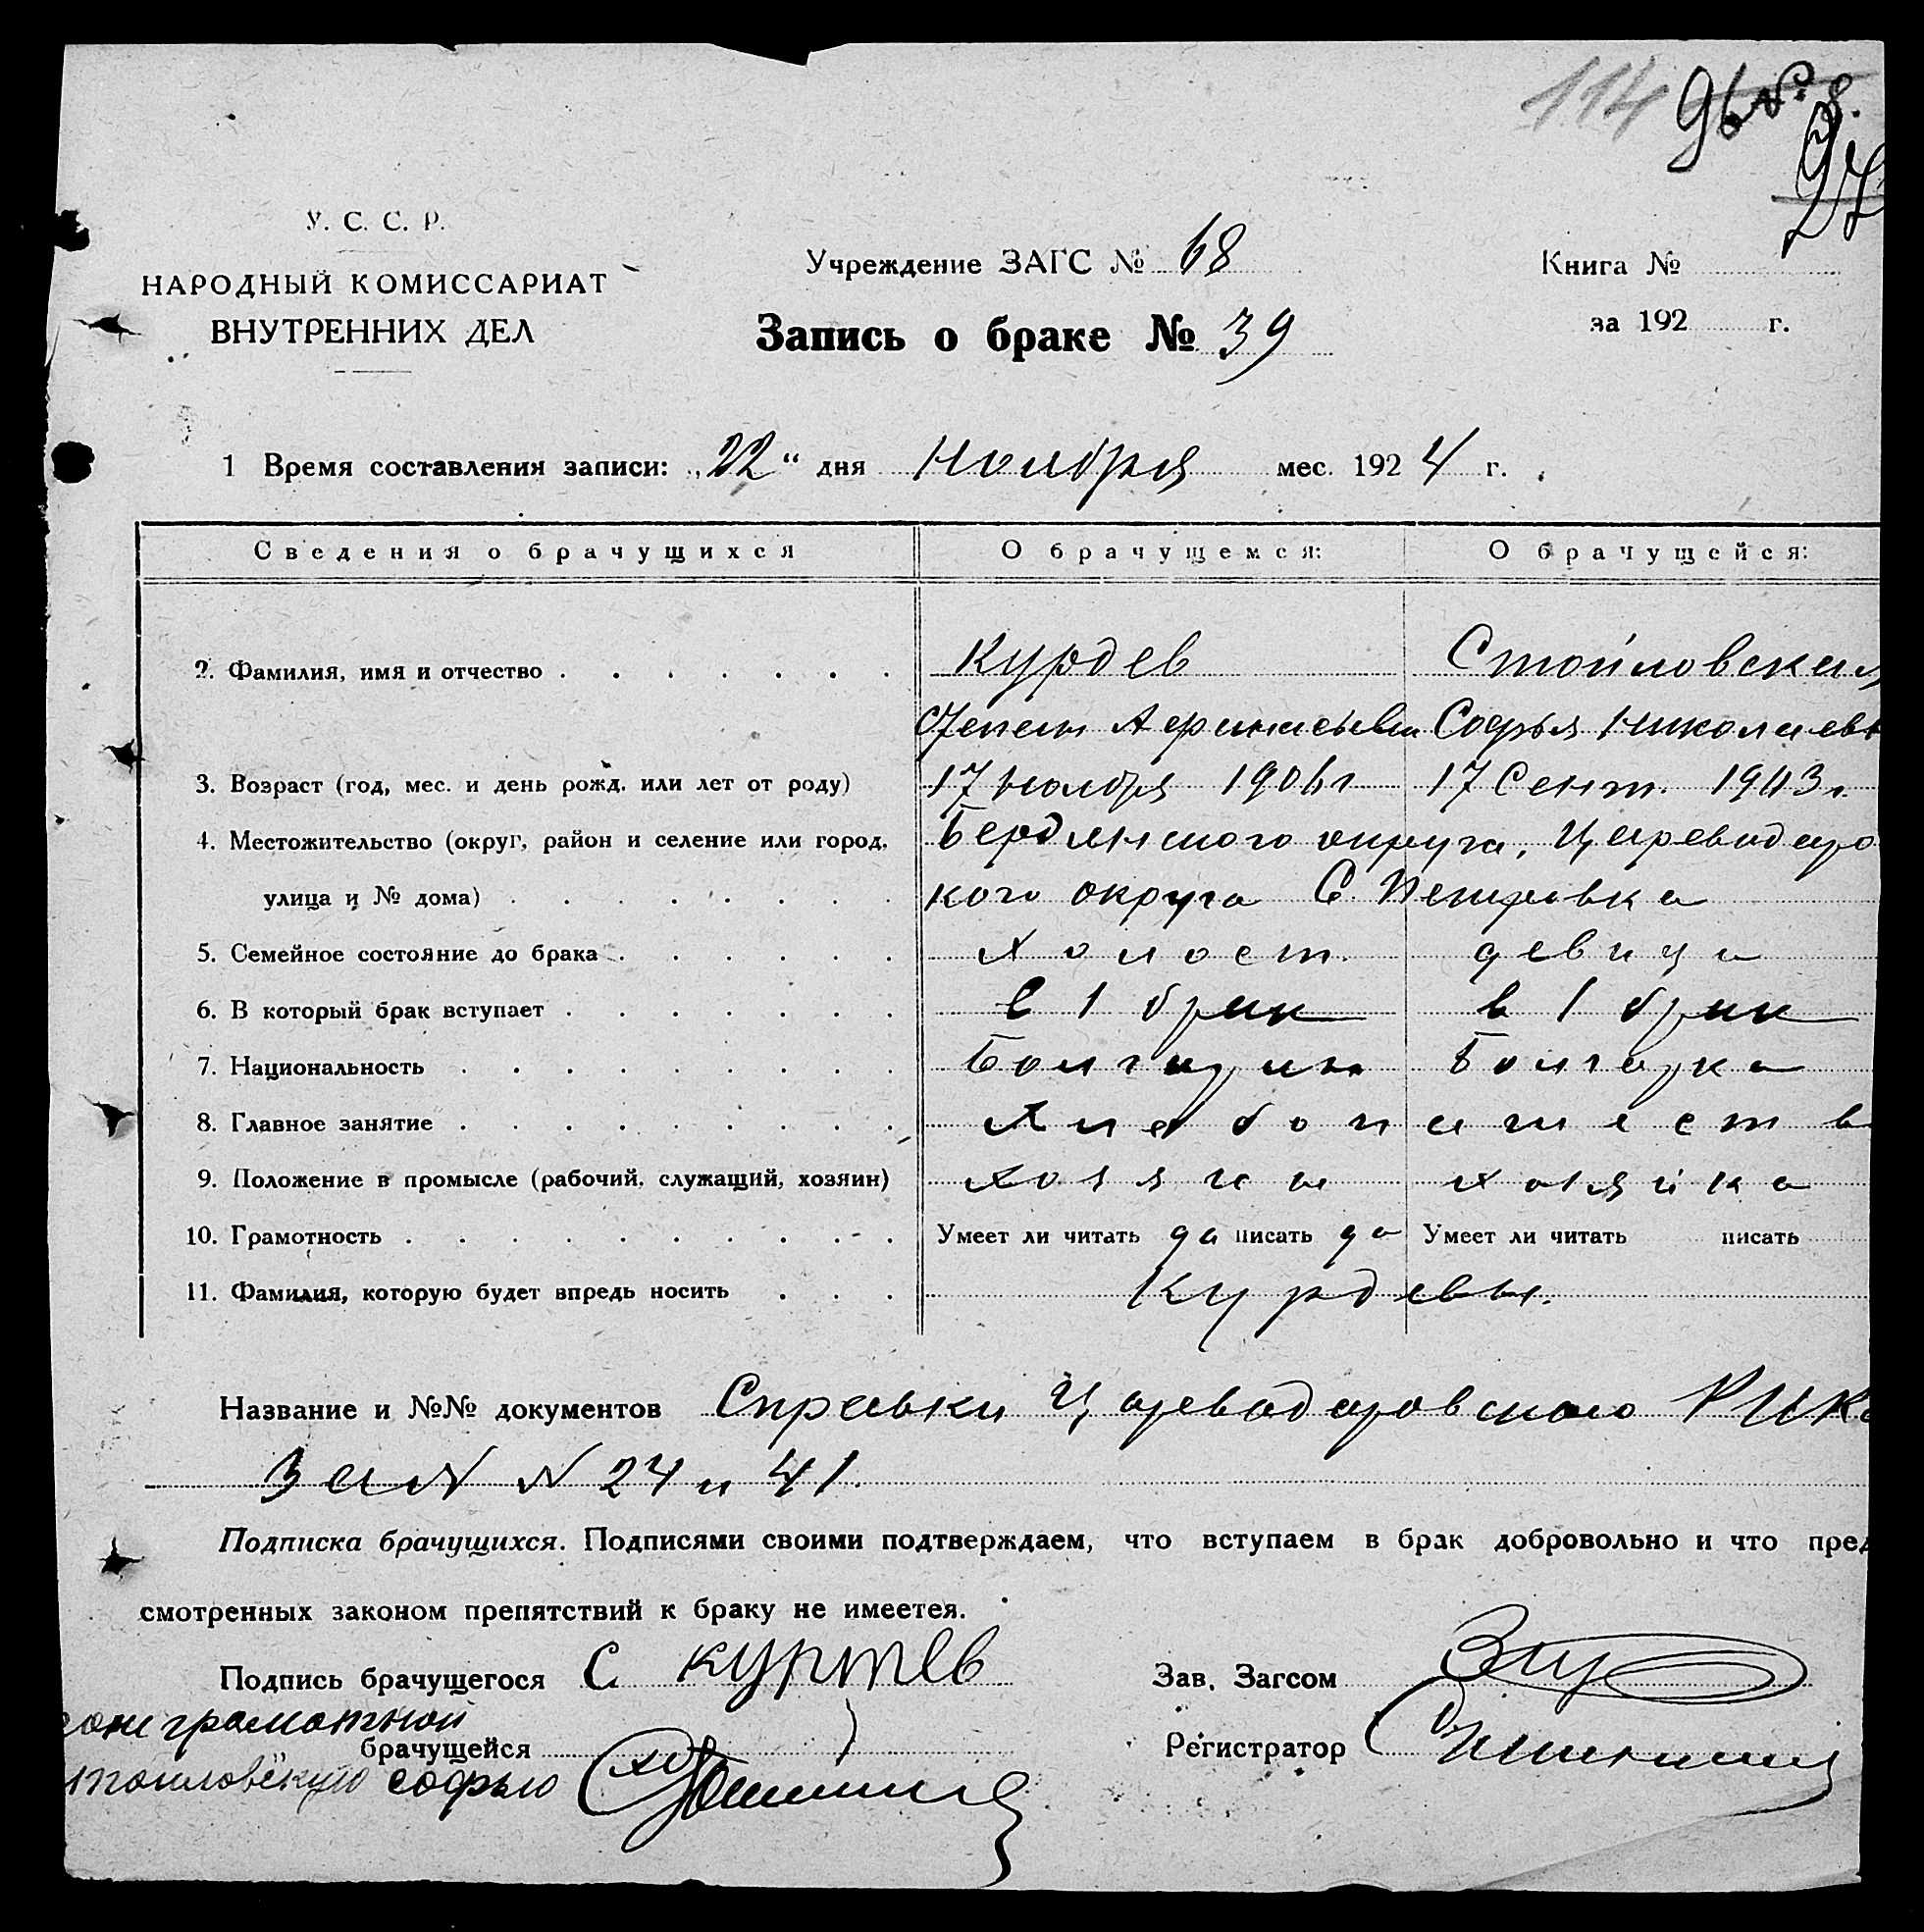 114 96 № 8.
97
У. С. С. Р.
НАРОДНЫЙ КОМИССАРИАТ
ВНУТРЕННИХ ДЕЛ
Учреждение ЗАГС № 68
Запись о браке № 39
Книга №
за 192 г.
1 Время составления записи: „22“ дня Ноября мес. 1924 г.
Сведения о брачущихся О брачущемся: О брачущейся:
2. Фамилия, имя и отчество Курдев Стойловская
Степан Афанасьевич Софья Николаевн
3. Возраст (год, мес. и день рожд. или лет от роду) 17 Ноября 1906 г 17 Сент. 1903 г.
4. Местожительство (округ, район и селение или город, Бердянского округа, Цареводаро
улица и № дома) кого округа С. Петровка
5. Семейное состояние до брака холост. девица
6. В который брак вступает в 1 брак в 1 брак
7. Национальность Болгарин Болгарка
8. Главное занятие Хлебопашеств
9. Положение в промысле (рабочий, служащий, хозяин) хозяин хозяйка
10. Грамотность Умеет ли читать да писать да Умеет ли читать писать
11. Фамилия, которую будет впредь носить Курдевы.
Название и №№ документов Справки Цареводаровского РИКа
За № № 24 и 41.
Подписка брачущихся. Подписями своими подтверждаем, что вступаем в брак добровольно и что пред
смотренных законом препятствий к браку не имеетея.
Подпись брачущегося С Куртев Зав. Загсом
грамотной
брачущейся Регистратор
Софью